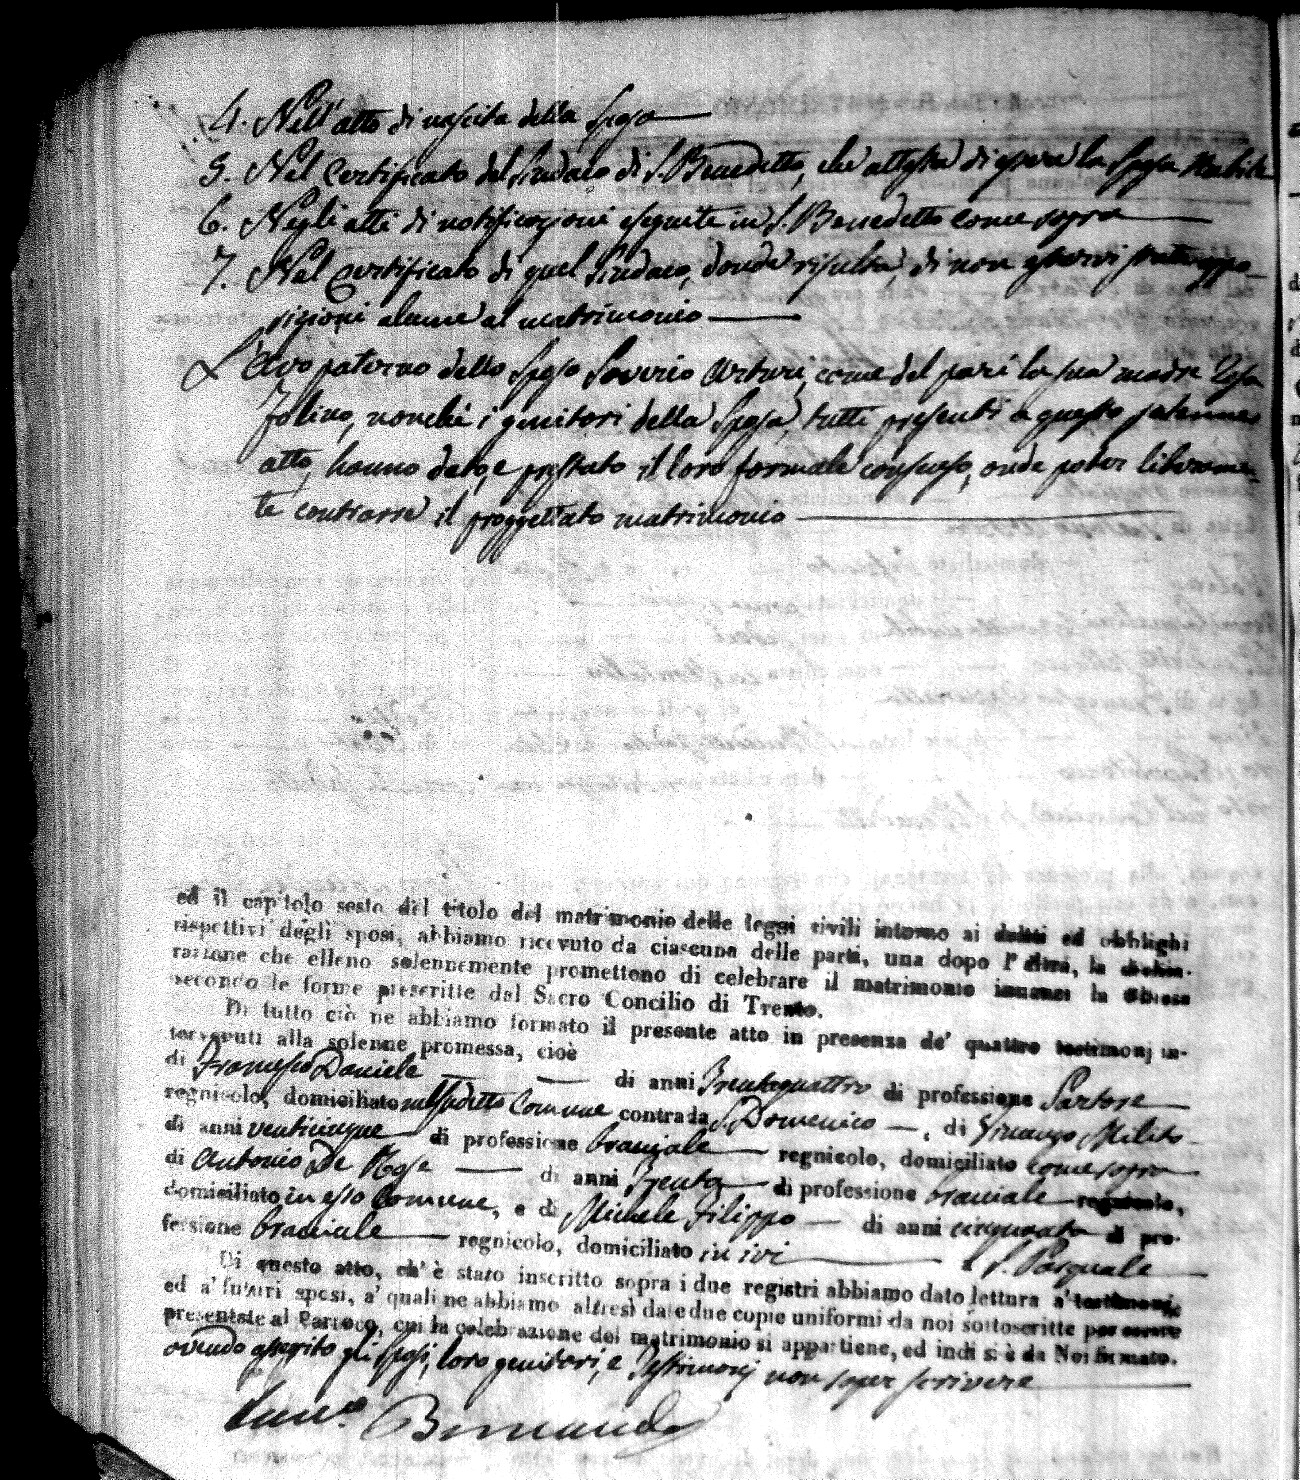 4. Nell'atto di nascita della Sposa
5. Nel certificato del Sindaco di S. Benedetto, che attesta di essere la Sposa nubile
6. Negli atti di notificazioni eseguite in S. Benedetto come sopra
7. Nel certificato di quel Sindaco, donde risulta, di non esservi state oppo-
sizioni alcune al matrimonio
L'avo paterno dello Sposo Saverio Arturi, come del pari la sua madre Rosa
Folino, nonché i genitori della Sposa, tutti presenti a questo
atto, hanno dato, e prestato il loro formale consenso, onde poter liberamen-
te contrarre il proggettato matrimonio
ed il capitolo sesto del titolo del matrimonio delle leggi civili intorno ai dritti ed obblighi
rispettivi degli sposi, abbiamo ricevuto da ciascuna delle parti, una dopo l'altra, la dichia-
razione che elleno solennemente promettono di celebrare il matrimonio innanzi la Chiesa
secondo le forme prescritte dal Sacro Concilio di Trento.
Di tutto ciò ne abbiamo formato il presente atto in presenza de' quattro testimonj in-
tervenuti alla solenne promessa, cioè
di Francesco Daniele di anni Trentaquattro di professione Sartore
regnicolo, domiciliato nel suddetto Comune contrada S. Domenico, di Vincenzo Milito
di anni venticinque di professione bracciale regnicolo, domiciliato come sopra
di Antonio De Rose di anni trenta di professione bracciale regnicolo,
domiciliato in esso Comune, e di Michele Filippo di anni cinquanta di pro-
fessione bracciale regnicolo, domiciliato in ivi S. Pasquale
Di questo atto, ch' è stato inscritto sopra i due registri abbiamo dato lettura a' testimonj,
ed a' futuri sposi, a' quali ne abbiamo altresì date due copie uniformi da noi sottoscritte per essere
presentate al Parroco, cui la celebrazione del matrimonio si appartiene, ed indi si è da Noi firmato.
avendo asserito gli Sposi, loro genitori, e Testimonj non saper scrivere